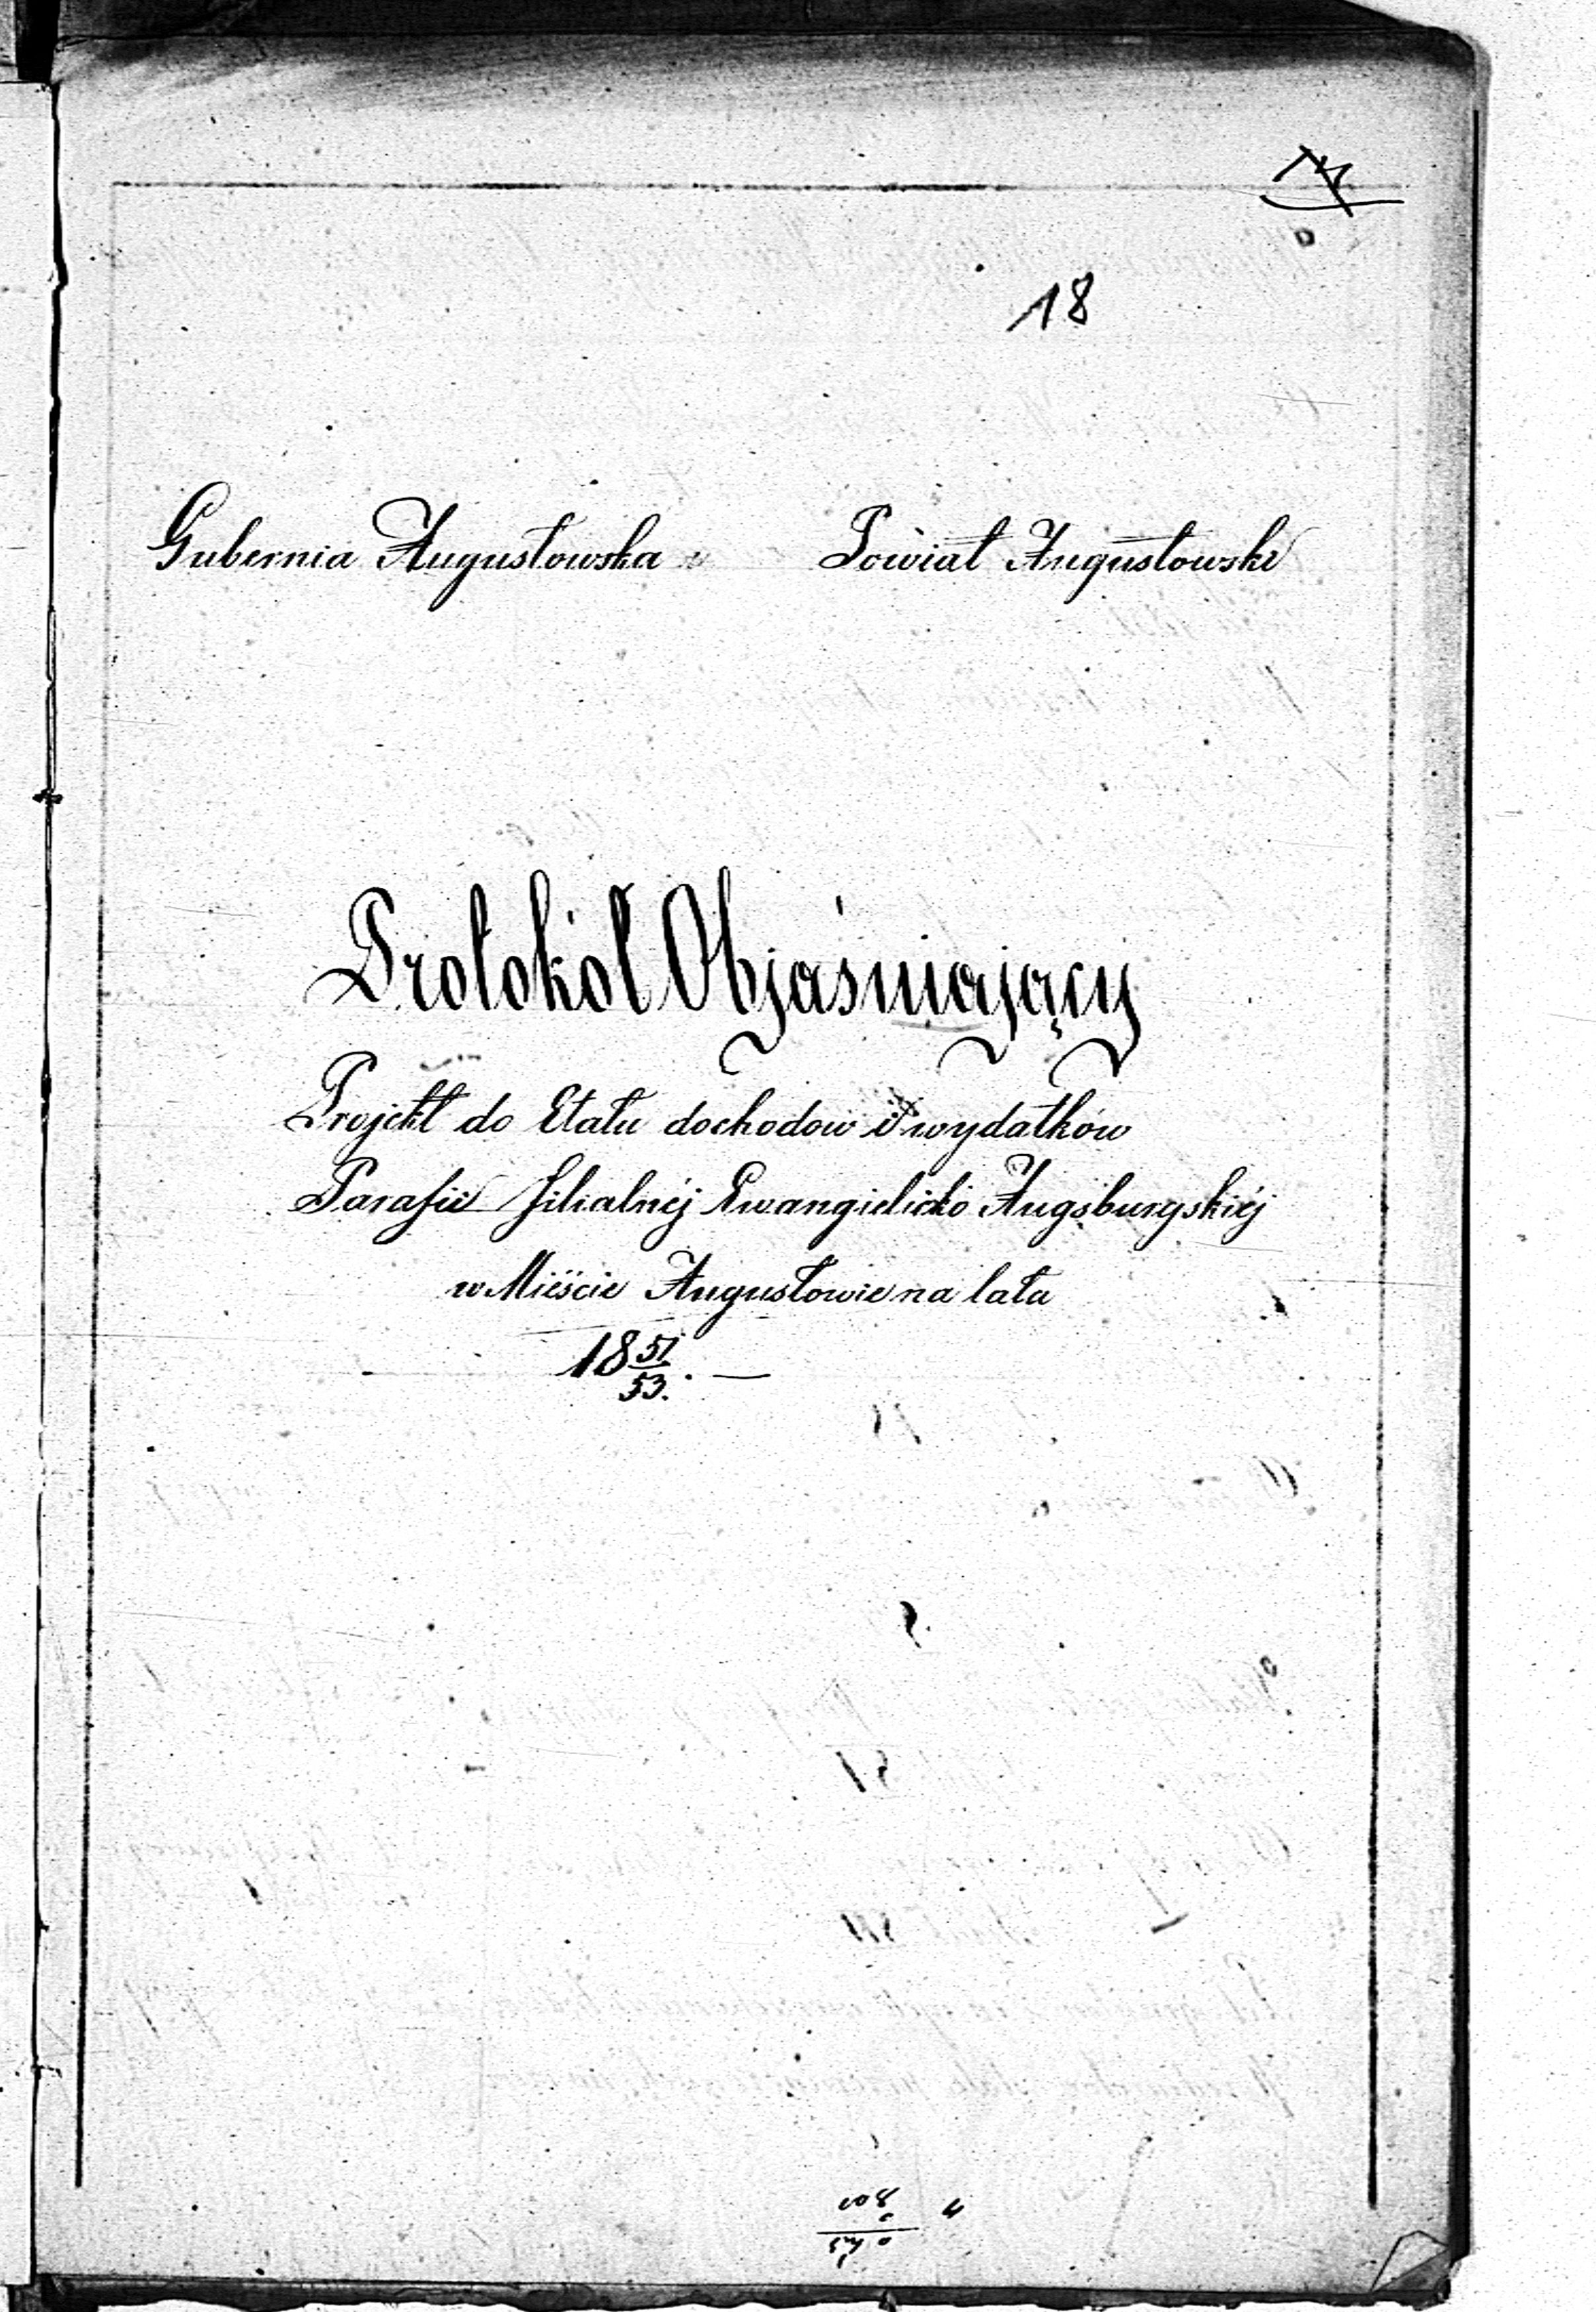 18
Gubernia Augustowska Powiat Augustowski
Protokół Objaśniający
Projekt do Etatu dochodow i wydatków
Parafii filialnéj Ewangielicko Augsburgskiéj
w Mieście Augustowie na lata
18 51/53. —